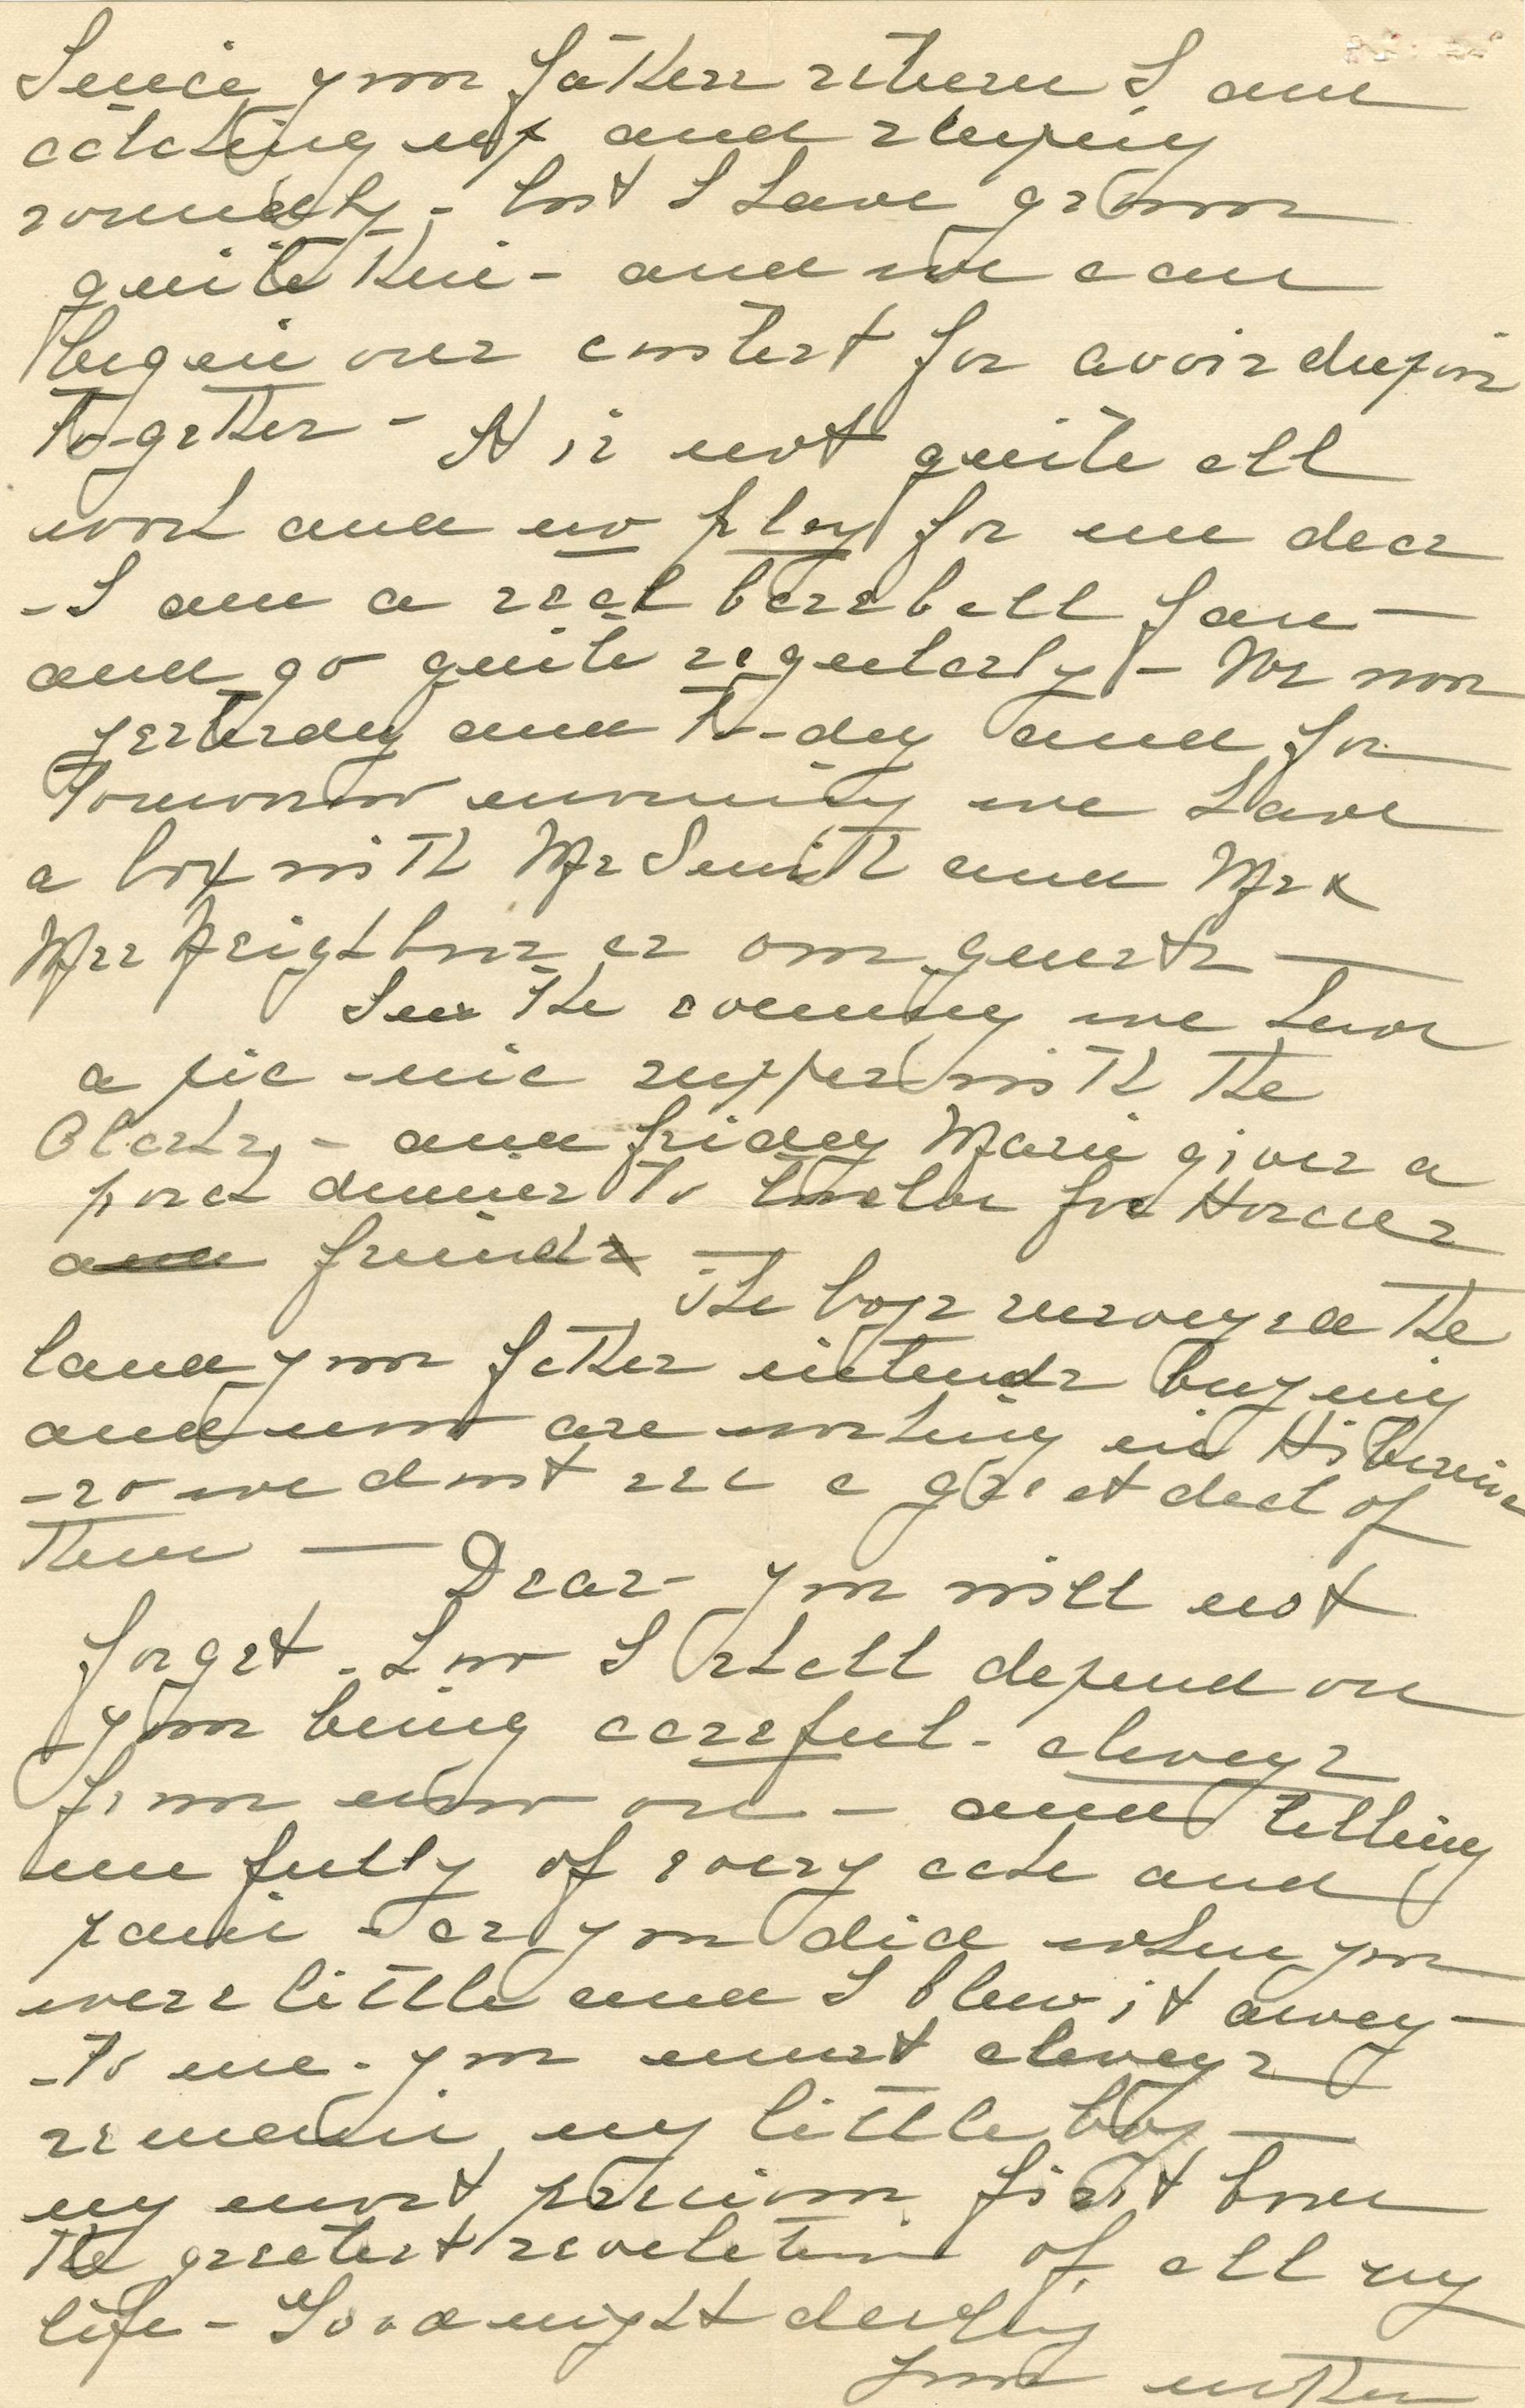 Since your father return I am
catching up and sleeping
soundly - but I have grown
quite thin - and we can
begin our contest for avoirdupois
to-gether - It is not quite all
work and no play for me dear
- I am a real baseball fan -
and go quite regularly - We won
yesterday and to-day and for
tomorrow morning we have
a box with Mr Smith and Mr &
Mrs Neighbour as our guests -
In the evening we have
a pic-nic supper with the
Clarks, - and friday Marie gives a
porch dinner to twelve for Horace's
friends
The boys surveyed the
land your father intends buying
and now are working in Hibernia
- so we dont see a great deal of
them - Dear - you will not
forget - how I shall depend on
your being careful - always
from now on - and telling
me fully of every ache and
pain - as you did when you
were little and I blew it away -
- to me - you must always
remain my little boy -
my most precious first born
the greatest revelation of all my
life - Good night dearly
your mother